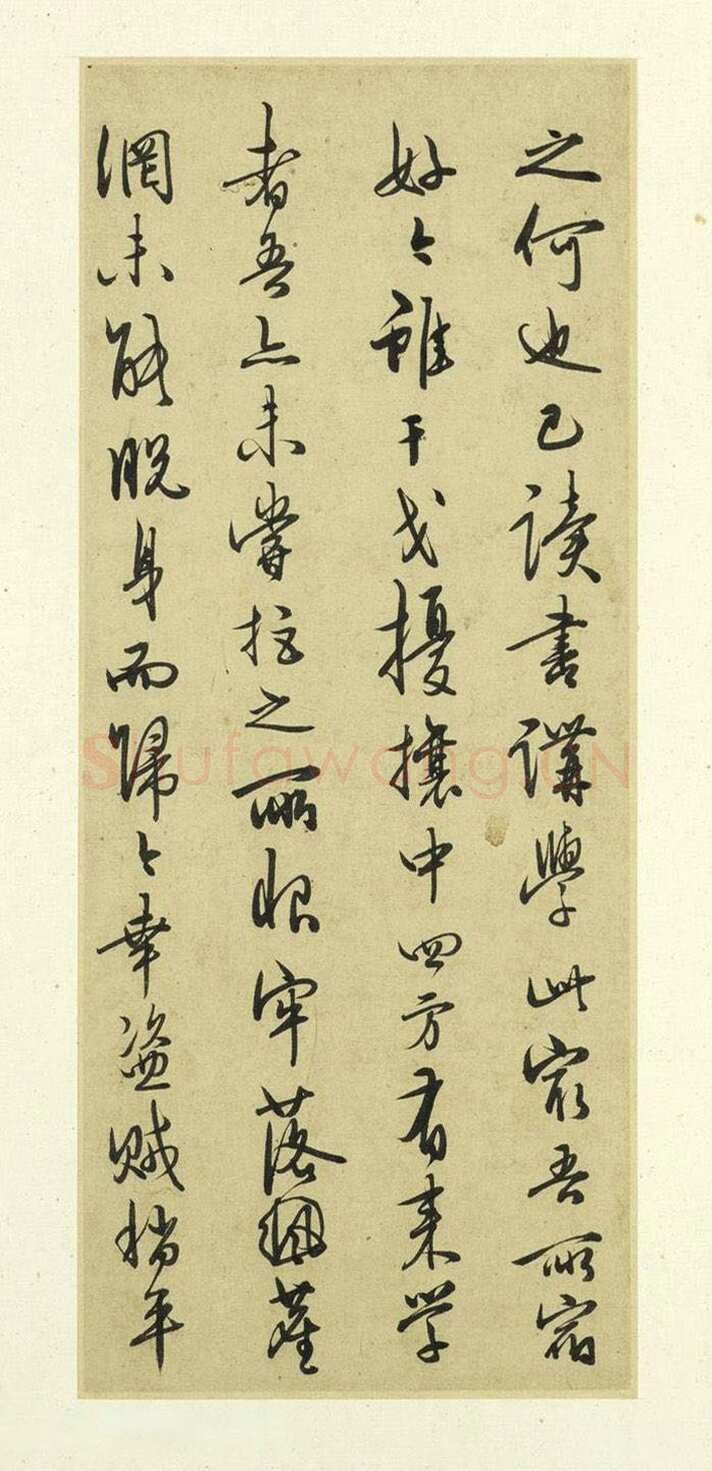 之何也已读書講學此最吾所宿
好々雖干戈擾攘中四方有来学
者吾亦未嘗拒之所恨牢落塵
網未能脱身而歸々幸盗賊稍平
Shufawang.CN